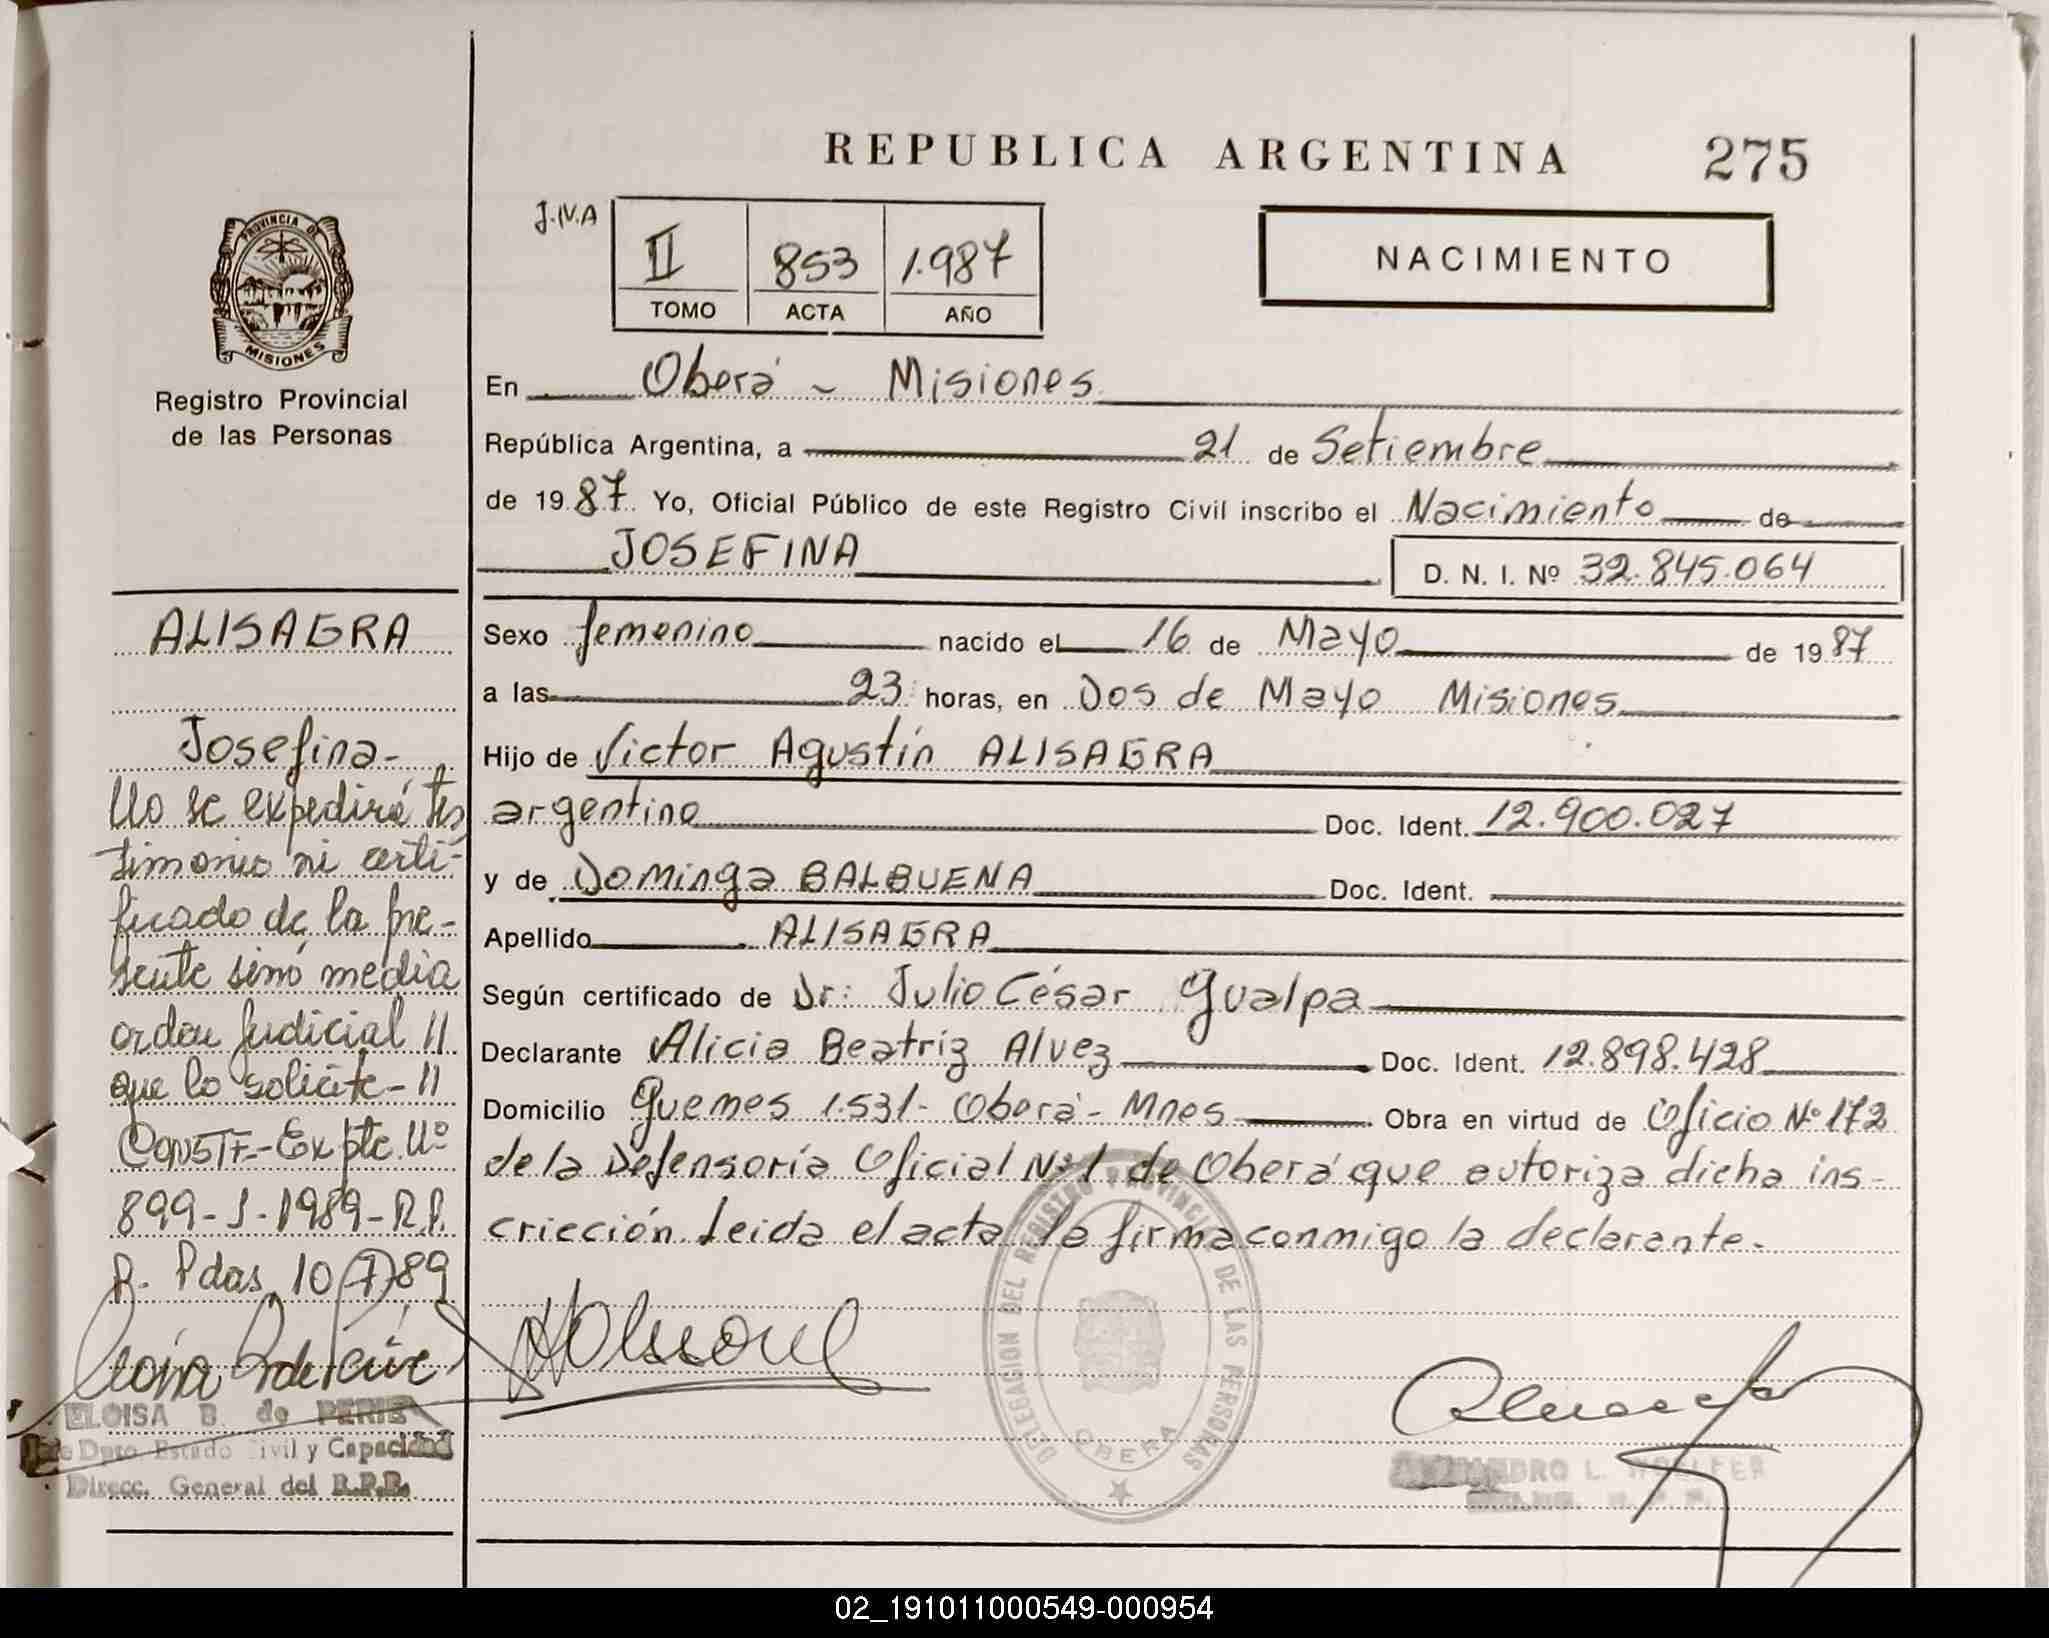 REPUBLICA ARGENTINA 275
J.IV.A
II 853 1.987
TOMO ACTA AÑO
NACIMIENTO
PROVINCIA DE
MISIONES
Registro Provincial
de las Personas
En Oberá - Misiones
República Argentina, a 21 de Setiembre
de 1987. Yo, Oficial Público de este Registro Civil inscribo el Nacimiento de
JOSEFINA
D. N. I. Nº 32.845.064
Sexo femenino nacido el 16 de Mayo de 1987
a las 23 horas, en Dos de Mayo Misiones
Hijo de Victor Agustín ALISAGRA
argentino Doc. Ident. 12.900.027
y de Dominga BALBUENA Doc. Ident.
Apellido ALISAGRA
Según certificado de Dr: Julio César Gualpa
Declarante Alicia Beatriz Alvez Doc. Ident. 12.898.428
Domicilio Guemes 1.531- Oberá - Mnes Obra en virtud de Oficio Nº 172
de la Defensoría Oficial Nº 1 de Oberá que autoriza dicha ins-
cricción. Leida el acta la firma conmigo la declarante.
ALISAGRA
Josefina-
No se expedirá tes
timonio ni certi-
ficado de la pre-
sente sinó media
orden Judicial //
que lo solicite- //
CONSTE-Expte. Nº
899-J-1989-R.P.
R. Pdas, 10(7)89
ELOISA B. de PERIE
Jefe Dpto. Estado Civil y Capacidad
Direcc. General del R.P.P.
DELEGACION DEL REGISTRO PROVINCIAL DE LAS PERSONAS
OBERA
02_191011000549-000954